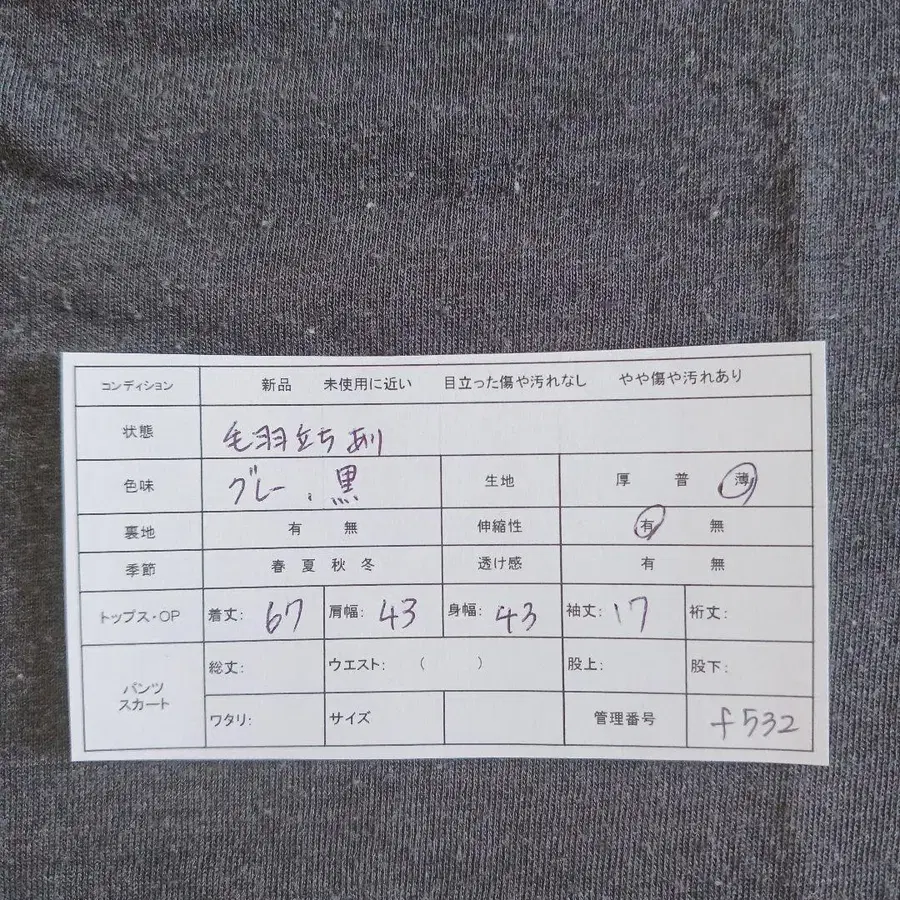 コンディション 新品 未使用に近い 目立った傷や汚れなし やや傷や汚れあり
状態 毛羽立ちあり
色味 グレー、黒 生地 厚 普 薄
裏地 有 無 伸縮性 有 無
季節 春 夏 秋 冬 透け感 有 無
トップス・OP 着丈: 67 肩幅: 43 身幅: 43 袖丈: 17 裄丈:
パンツ
スカート
総丈: ウエスト: ( ) 股上: 股下:
ワタリ: サイズ 管理番号 f532